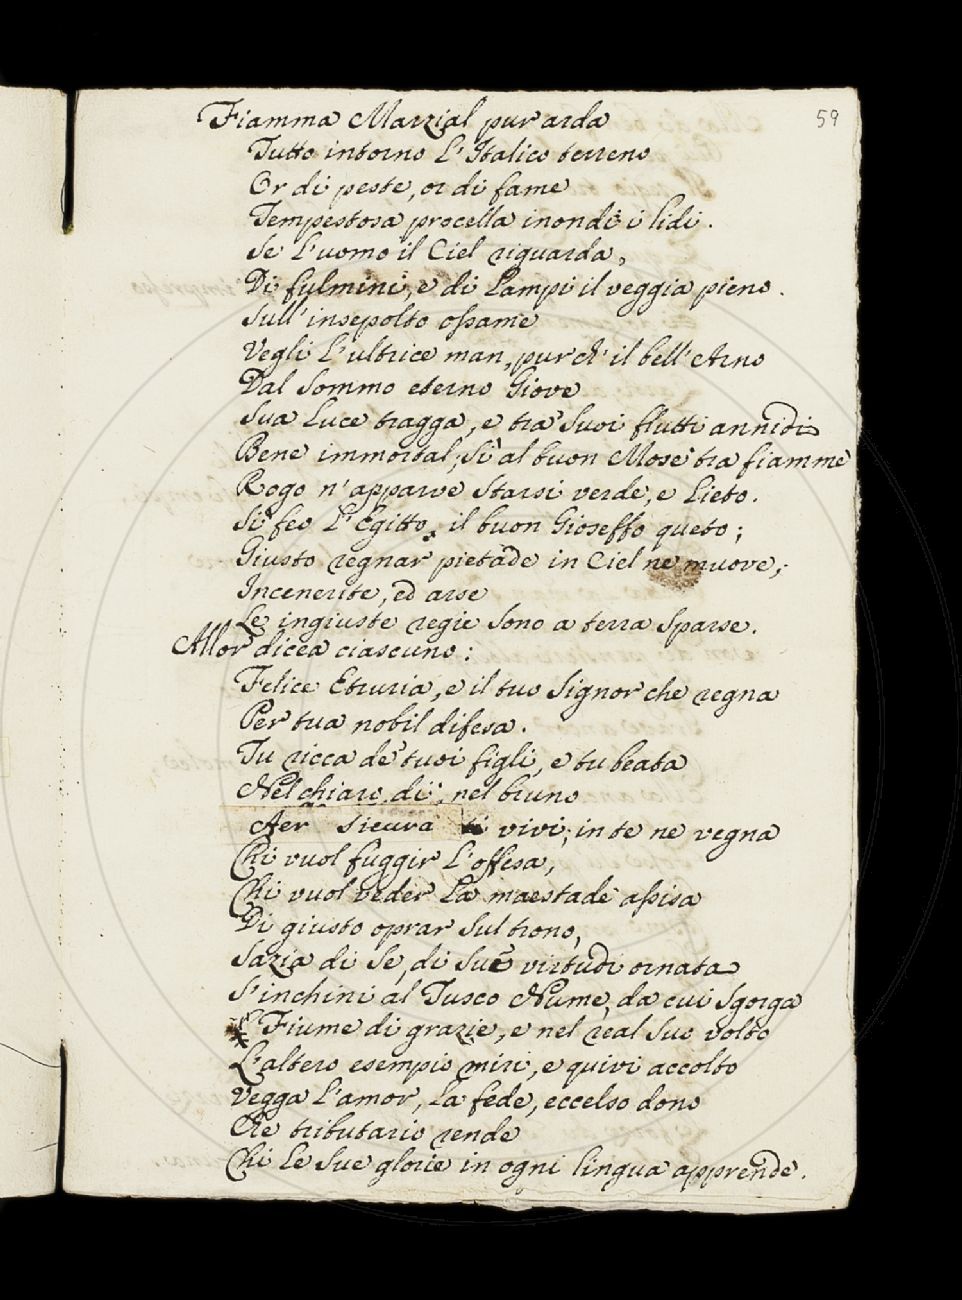 59
Fiamma Marzial pur arda
Tutto intorno l'Italico terreno
Or di peste, or di fame
Tempestosa procella inondi i lidi.
Se l'uomo il Ciel riguarda,
Di fulmini, e di Lampi il veggia pieno.
Sull'insepolto ossame
Vegli l'ultrice man, pur ch'il bell'Arno
Dal Sommo eterno Giove
Sua Luce tragga, e tra' Suoi flutti annidi
Bene immortal; Sì al buon Mosè tra fiamme
Rogo n'apparve Starsi verde, e Lieto.
Si feo l'Egitto, il buon Gioseffo queto;
Giusto regnar pietade in Ciel ne muove;
Incenerite, ed arse
Le ingiuste regie Sono a terra Sparse.
Allor dicea ciascuno:
Felice Etruria, e il tuo Signor che regna
Per tua nobil difesa.
Tu ricca de' tuoi figli, e tu beata
Nel chiaro dì, nel bruno
Aer Sicura ti vivi; in te ne vegna
Chi vuol fuggir l'offesa,
Chi vuol veder La maestade assisa
Di giusto oprar Sul trono,
Sazia di Se, di Sue virtudi ornata
S'inchini al Tusco Nume, da cui Sgorga
Fiume di grazie, e nel real Suo volto
L'altero esempio miri, e quivi accolto
Vegga l'amor, La fede, eccelso dono
Che tributario rende
Chi Le Sue glorie in ogni lingua apprende.